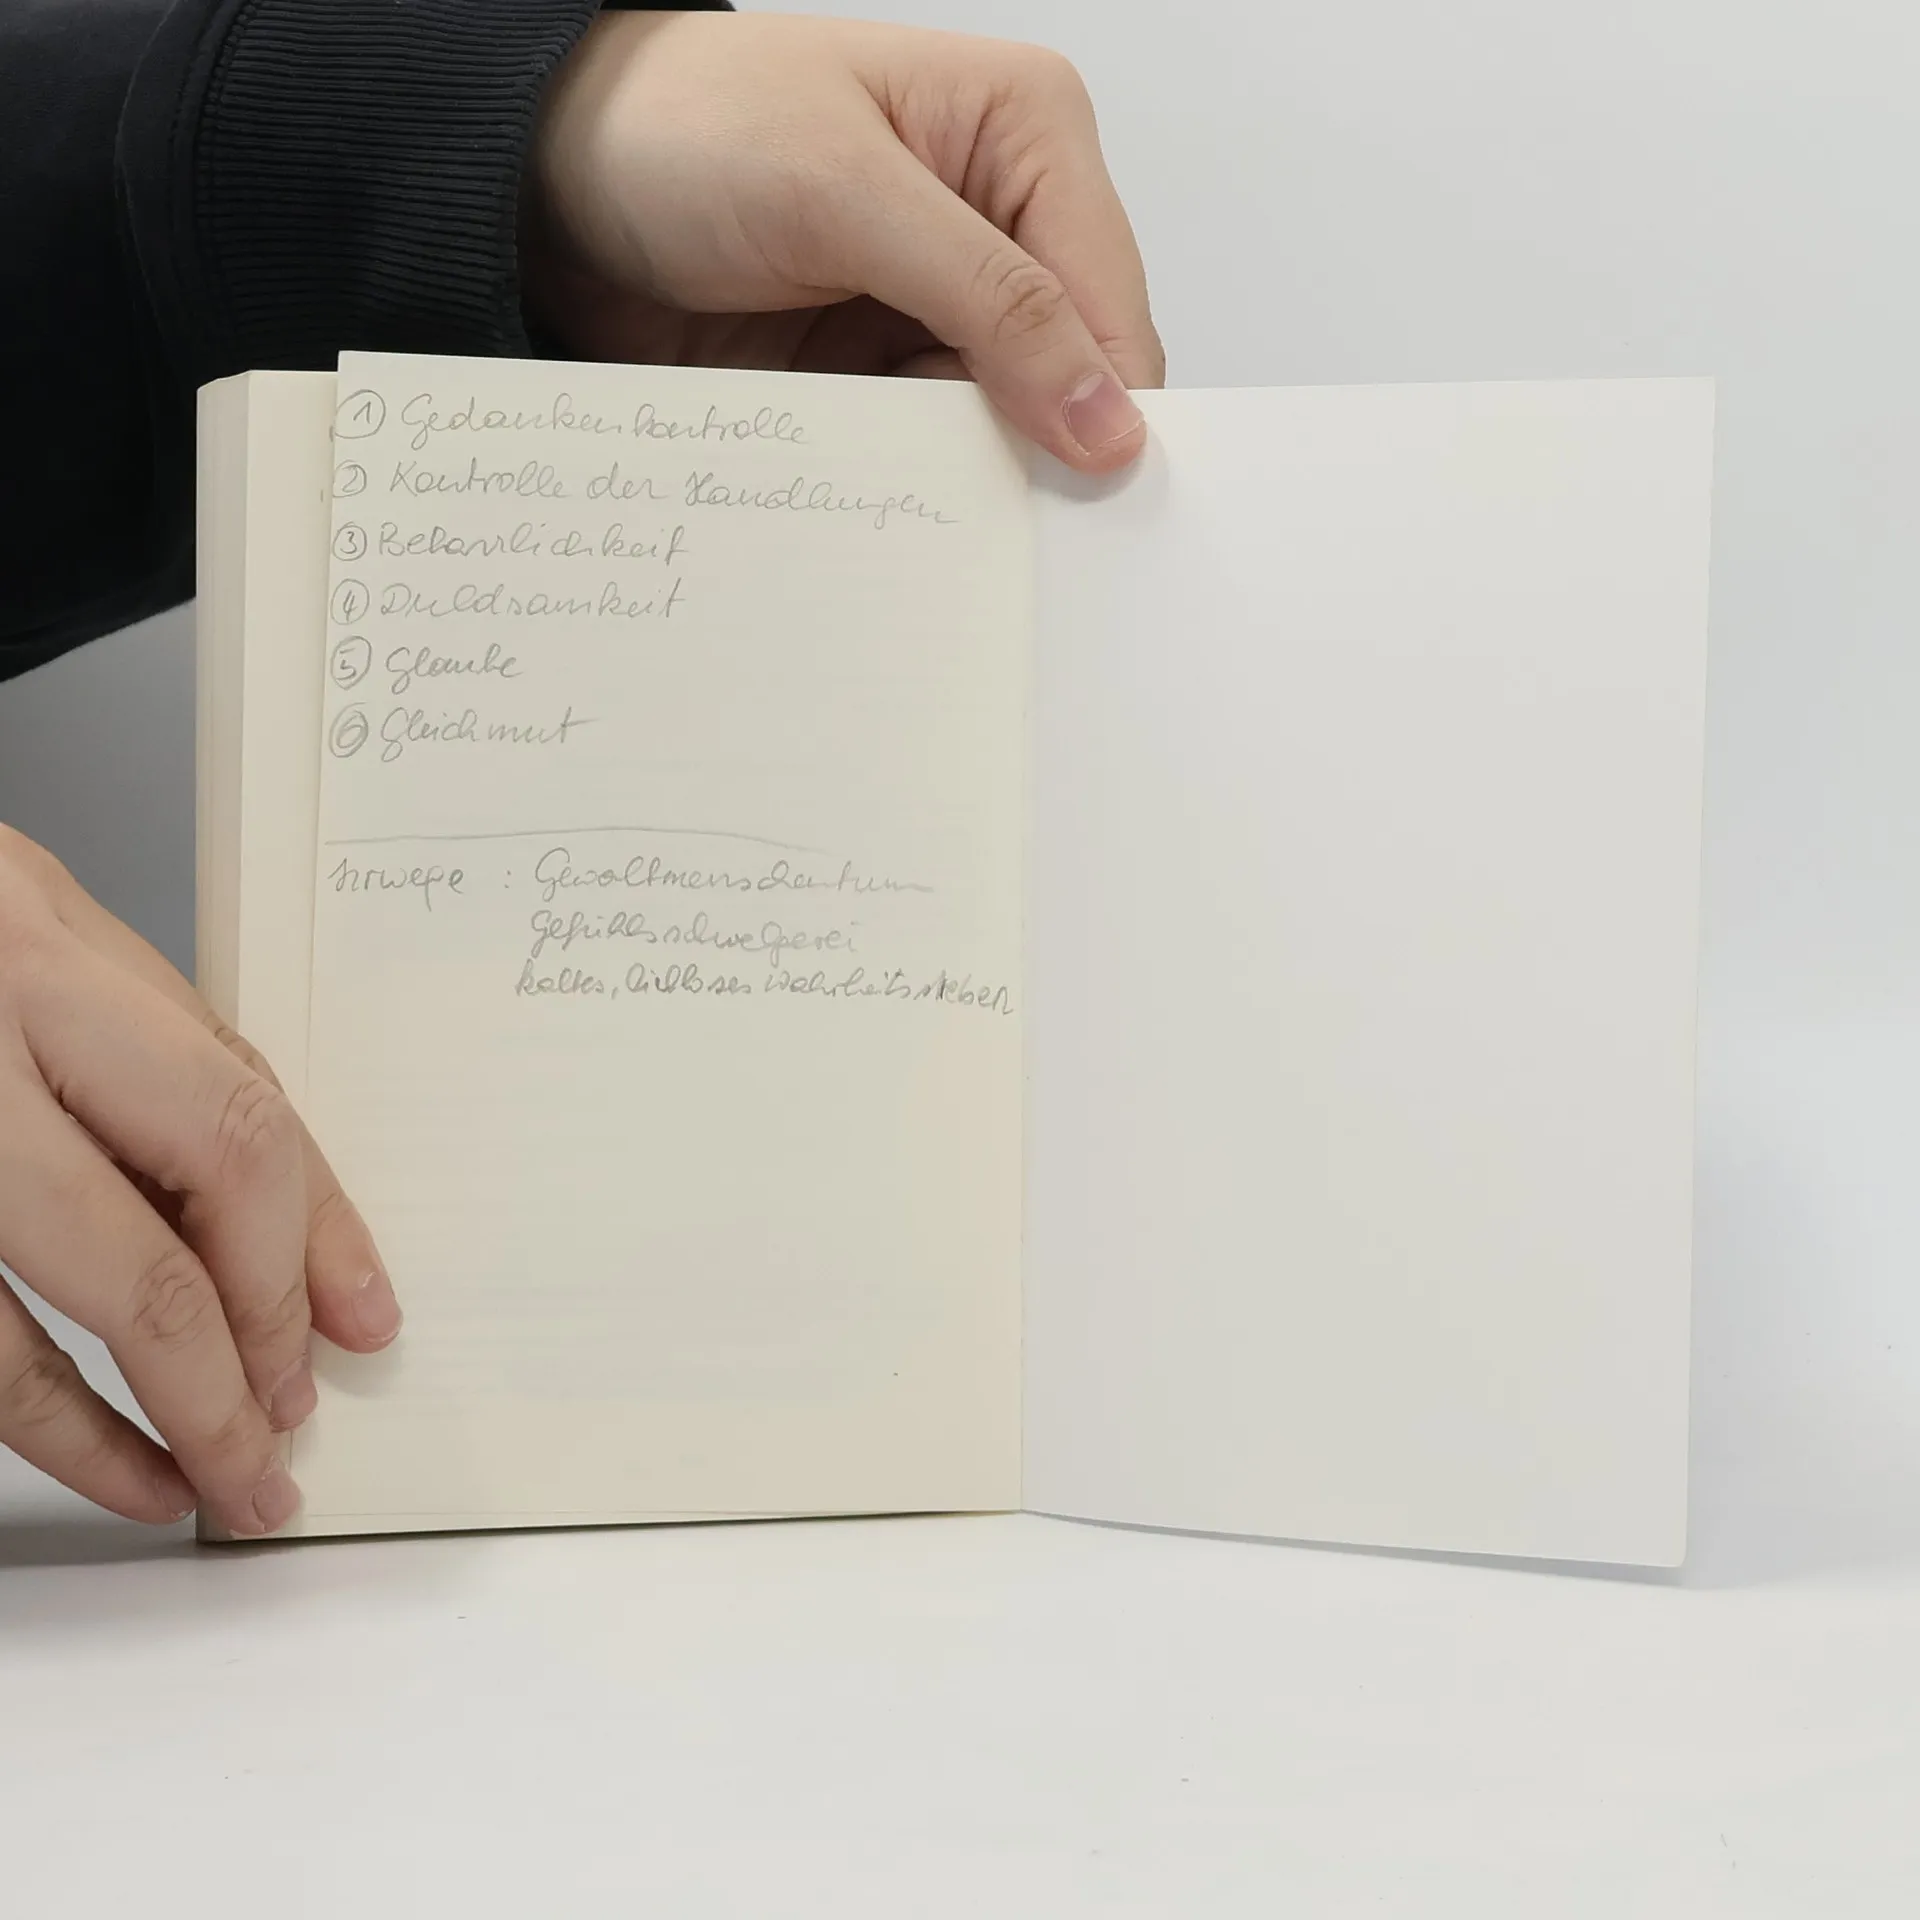 ① Gedankenkontrolle
② Kontrolle der Handlungen
③ Beharrlichkeit
④ Duldsamkeit
⑤ Glaube
⑥ Gleichmut
Irrwege : Gewaltmenschentum
Gefühlsschwelgerei
kaltes, liebloses Wahrheitsstreben